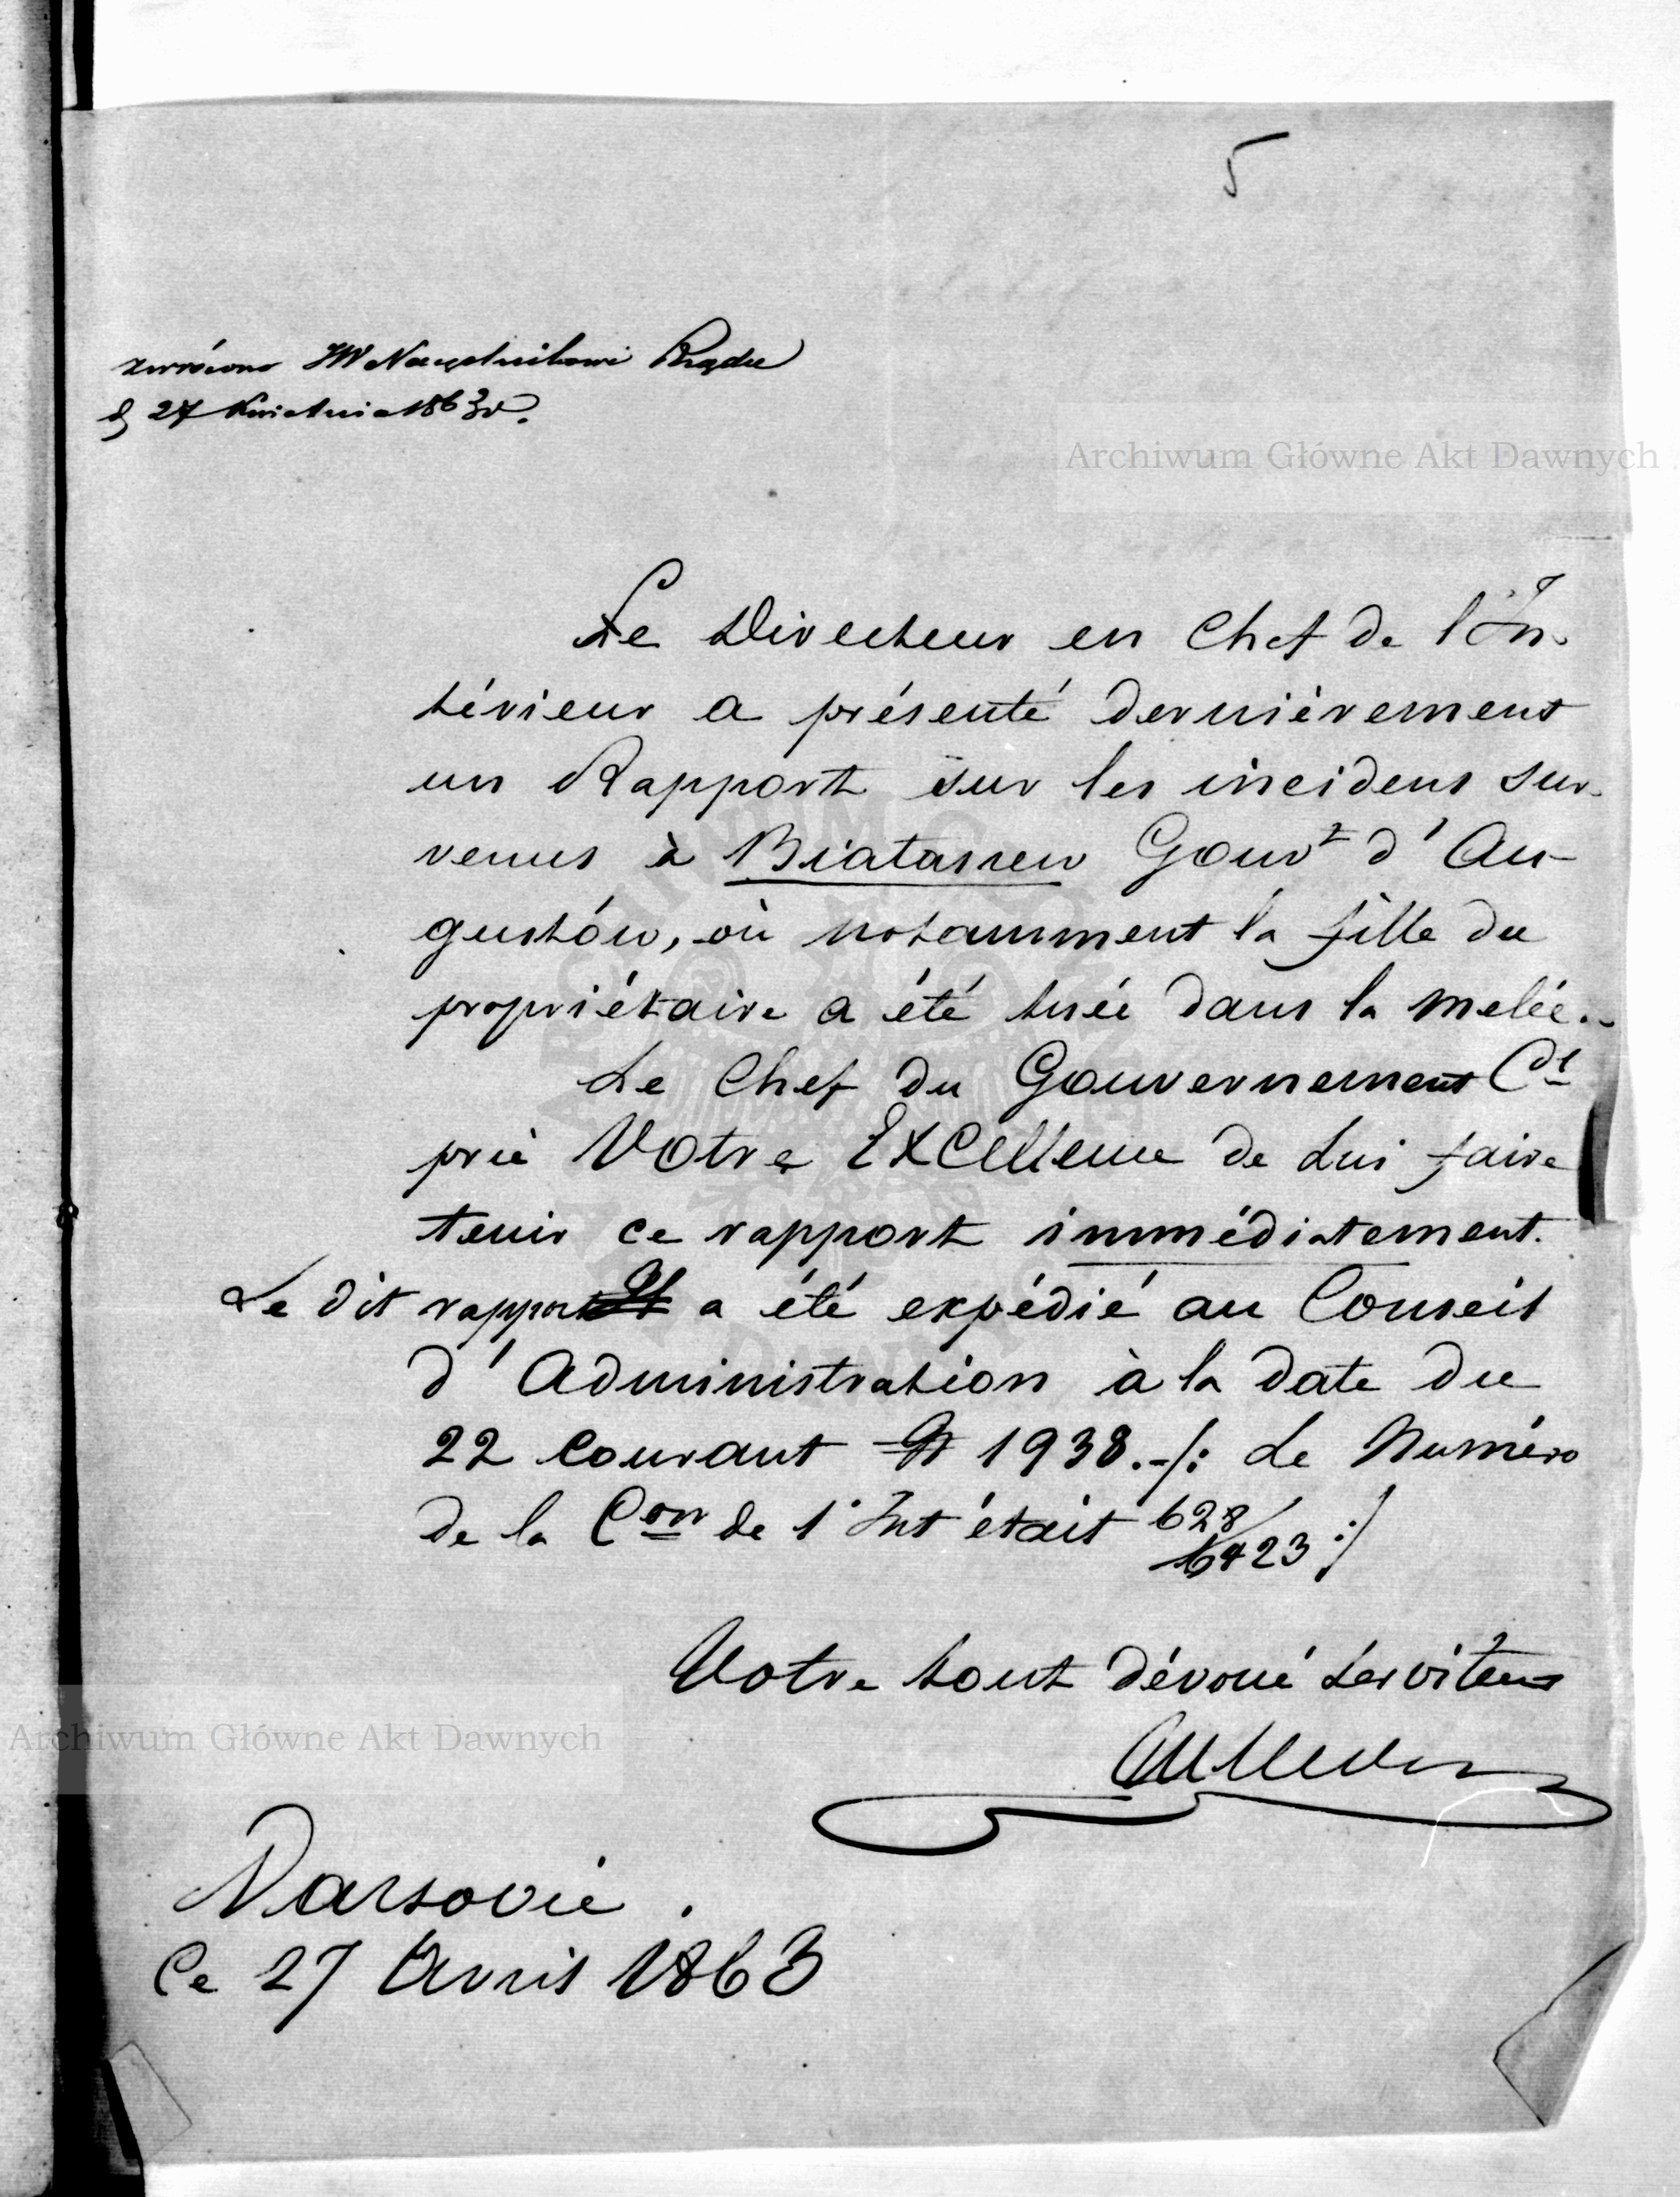 5
zwrócono JW Naczelnikowi Rządu
d 27 Kwietnia 1863 r.
Archiwum Główne Akt Dawnych
Le Directeur en Chef de l'In-
térieur a présenté dernièrement
un Rapport sur les incidens sur-
venus à Biatassew Gouvt d'Au-
gustów, où notamment la fille du
propriétaire a été tuée dans la melée.
Le Chef du Gouvernement Cl
prie Votre Excellence de Lui faire
tenir ce rapport immédiatement.
Le dit rapport a été expédié au Conseil
d'Administration à la date du
22 courant N 1938.-/: Le Numéro
de la Con de l'Int était 628/
6423 :/
Votre tout dévoué serviteur
Archiwum Główne Akt Dawnych
Varsovie.
Ce 27 Avril 1863